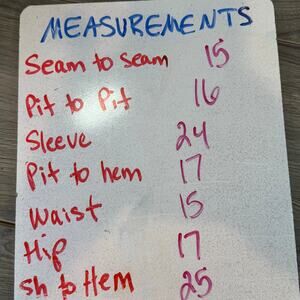 MEASUREMENTS
Seam to seam 15
Pit to Pit 16
Sleeve 24
Pit to hem 17
Waist 15
Hip 17
Sh to Hem 25